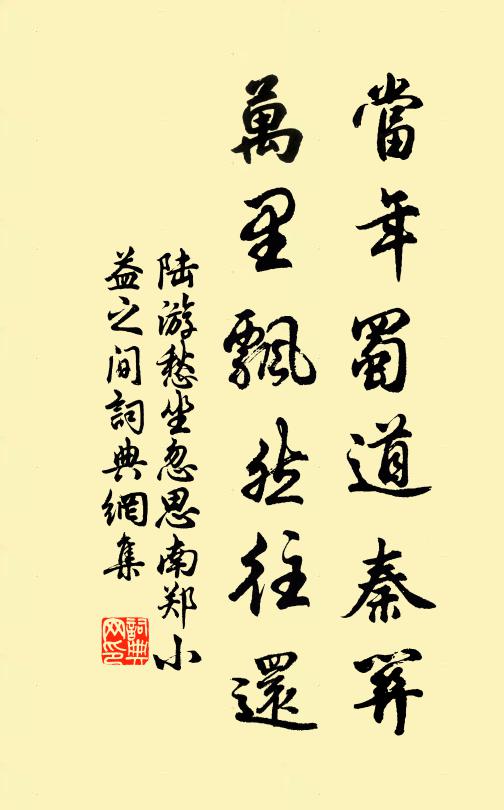 當年蜀道秦關
萬里飄然往還
陆游愁坐忽思南郑小
益之间詞典網集
詞典網印